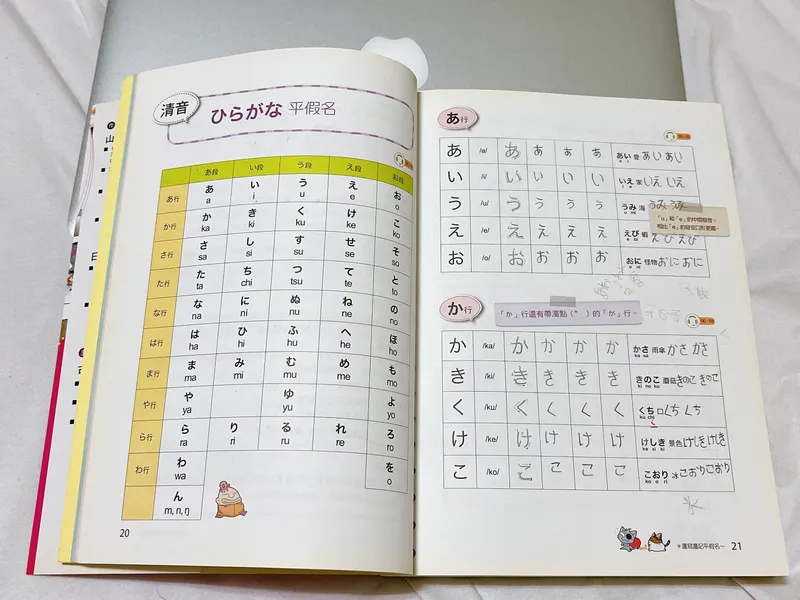 清音
ひらがな 平假名
あ段 い段 う段 え段 お段
あ行 あ い う え お
a i u e o
か行 か き く け こ
ka ki ku ke ko
さ行 さ し す せ そ
sa si su se so
た行 た ち つ て と
ta chi tsu te to
な行 な に ぬ ね の
na ni nu ne no
は行 は ひ ふ へ ほ
ha hi hu he ho
ま行 ま み む め も
ma mi mu me mo
や行 や ゆ よ
ya yu yo
ら行 ら り る れ ろ
ra ri ru re ro
わ行 わ を
wa o
ん
m, n, ŋ
20
あ行
あ /a/ あ あ あ あ あい 愛 あい あい
a i
い /i/ い い い い いえ 家 いえ いえ
i e
う /u/ う う う う うみ 海 うみ うみ
u mi
「u」和「e」的中間發音，
え /e/ え え え え えび 蝦 えび えび
e bi
お /o/ お お お お おに 怪物 おに おに
o ni
か行
「か」行還有帶濁點(〝)的「が」行。
か /ka/ か か か か かさ 雨傘 かさ かさ
ka sa
き /ki/ き き き き きのこ 蘑菇 きのこ きのこ
ki no ko
く /ku/ く く く く くち 口 くち くち
ku chi
け /ke/ け け け け けしき 景色 けしき けしき
ke si ki
こ /ko/ こ こ こ こ こおり 冰 こおり こおり
ko o ri
氷
＊邊寫邊記平假名～
21